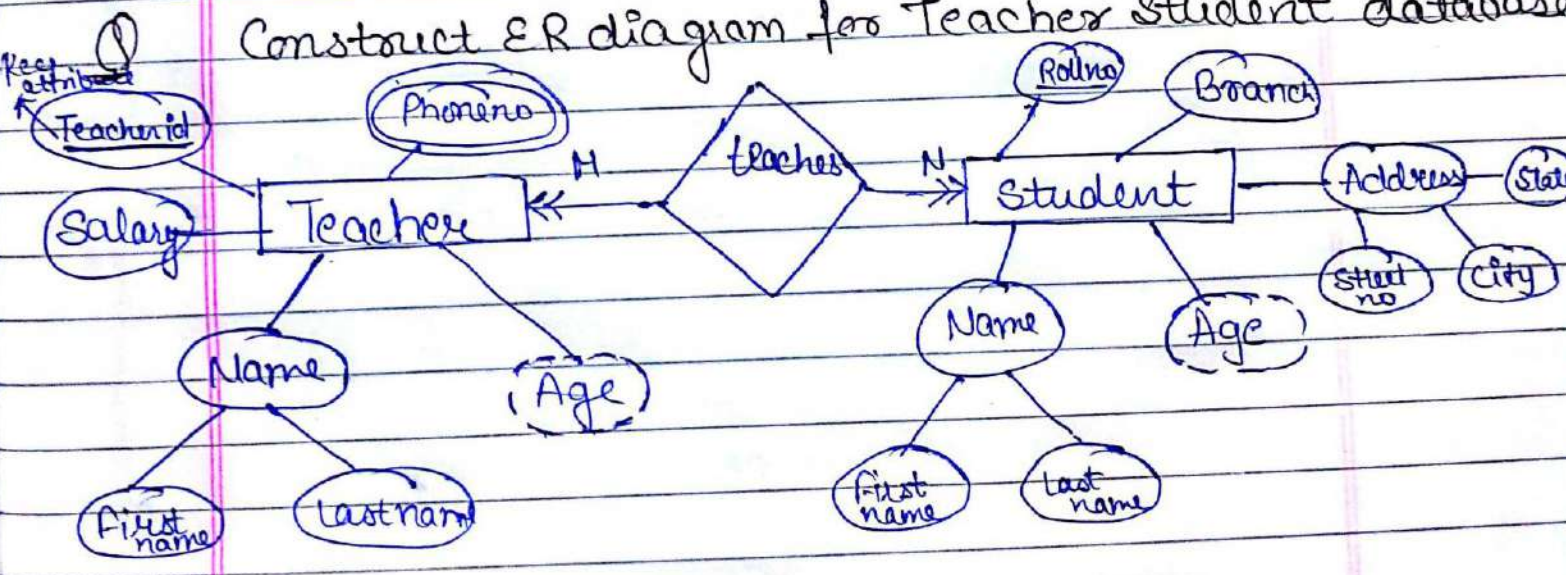 Q Construct ER diagram for Teacher Student database
Key attribute
Teacherid
Phoneno
Rollno
Branch
teaches
M
N
Salary
Teacher
Student
Address
State
Street no
City
Name
Age
Name
Age
First name
Lastname
First name
Last name